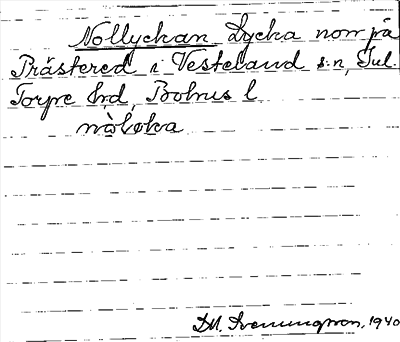 Nollyckan Lycka norr på
Prästered i Vesteland s:n, Inl.
Torpe hrd, Bohus l
nòloka
D.M. Svenningsson, 1940